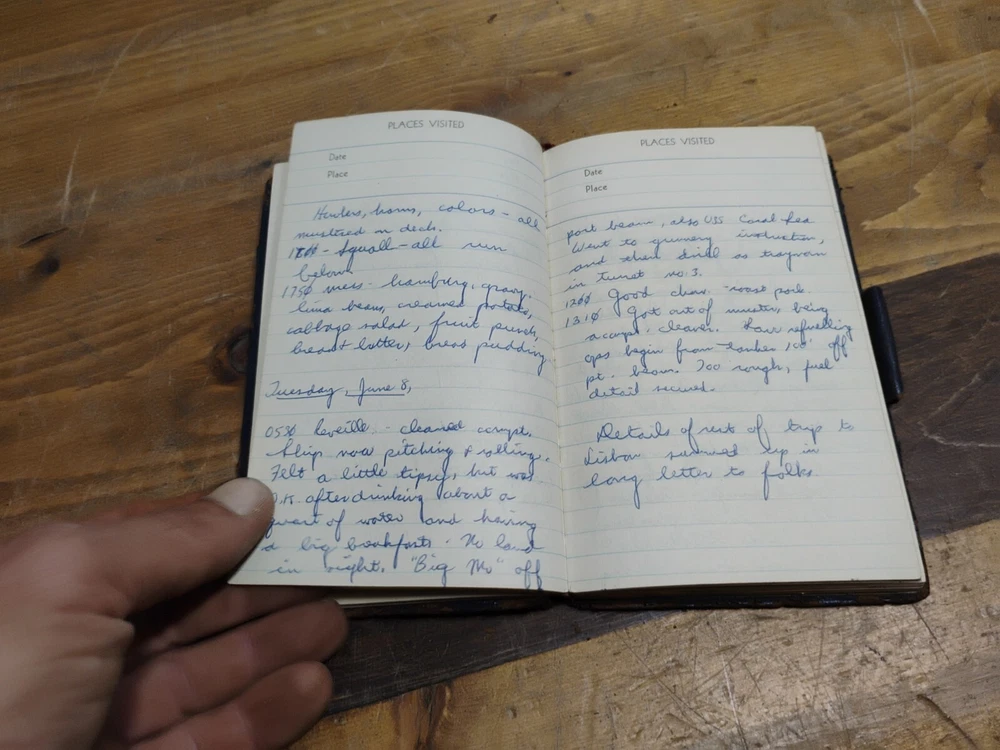 PLACES VISITED
Date
Place
horns, colors - all
mustered on deck.
- Squall - all run
below.
175ø mess - hamburg, gravy,
lima beans, creamed potatoes,
cabbage salad, fruit punch,
bread & butter, bread pudding.
Tuesday, June 8,
0530 Reveille - cleaned compt.
Ship now pitching & rolling.
Felt a little tipsy, but was
O.K. after drinking about a
quart of water and having
a big breakfast. No land
in sight. "Big Mo" off
PLACES VISITED
Date
Place
port beam, also USS Coral Sea
Went to gunnery instruction,
and then drill as
in turret no. 3.
120ø Good chow - roast pork.
131ø Got out of muster, being
a compt. cleaner. refuelling
ops begin from tanker, off
pt. beam. Too rough, fuel
detail secured.
Details of rest of trip to
Lisbon summed up in
long letter to folks.